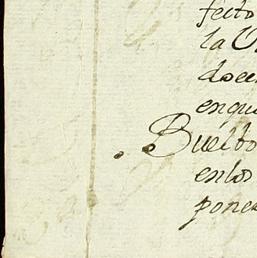 fecto
la V
doce
enqu
Buelto
enlos
pone